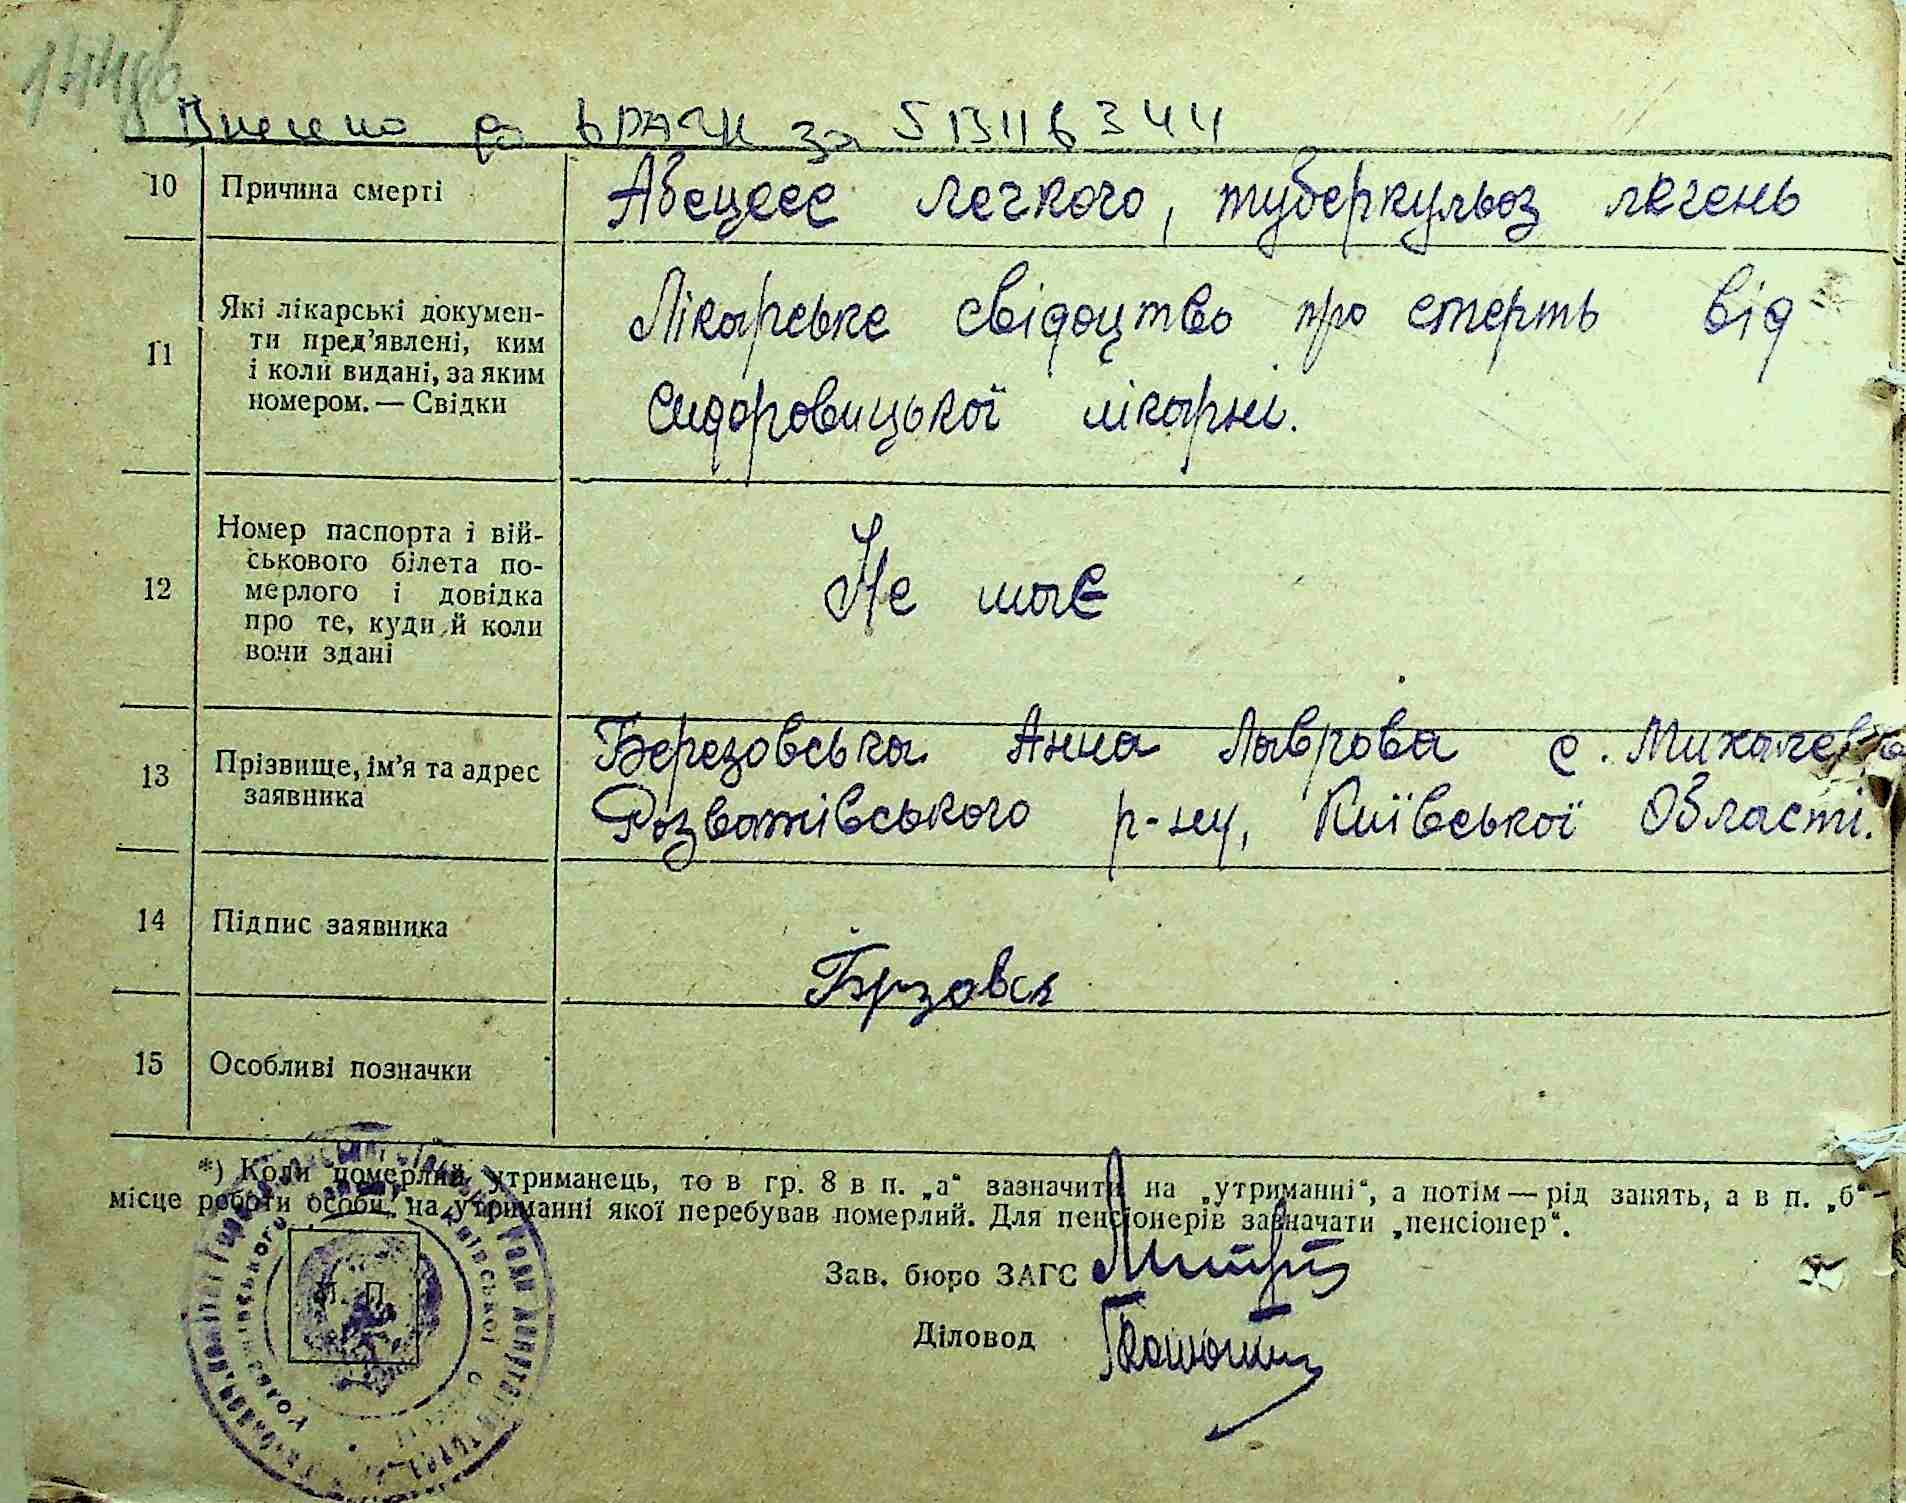 Внесено до ДРАЦС за
10 Причина смерті Абсцесс легкого, туберкульоз легень
11 Які лікарські докумен-
ти пред'явлені, ким
і коли видані, за яким
номером. — Свідки
Лікарське свідоцтво про смерть від
Сидоровицької лікарні.
12 Номер паспорта і вій-
ськового білета по-
мерлого і довідка
про те, куди й коли
вони здані
Не має
13 Прізвище, ім'я та адрес
заявника
Березовська Анна Лаврова с.
Розважівського р-ну, Київської Області.
14 Підпис заявника
15 Особливі позначки
*) Коли померлий утриманець, то в гр. 8 в п. „а“ зазначити на „утриманні“, а потім — рід занять, а в п. „б“ —
місце роботи особи, на утриманні якої перебував померлий. Для пенсіонерів зазначати „пенсіонер“.
Зав. бюро ЗАГС
Діловод
М. П.